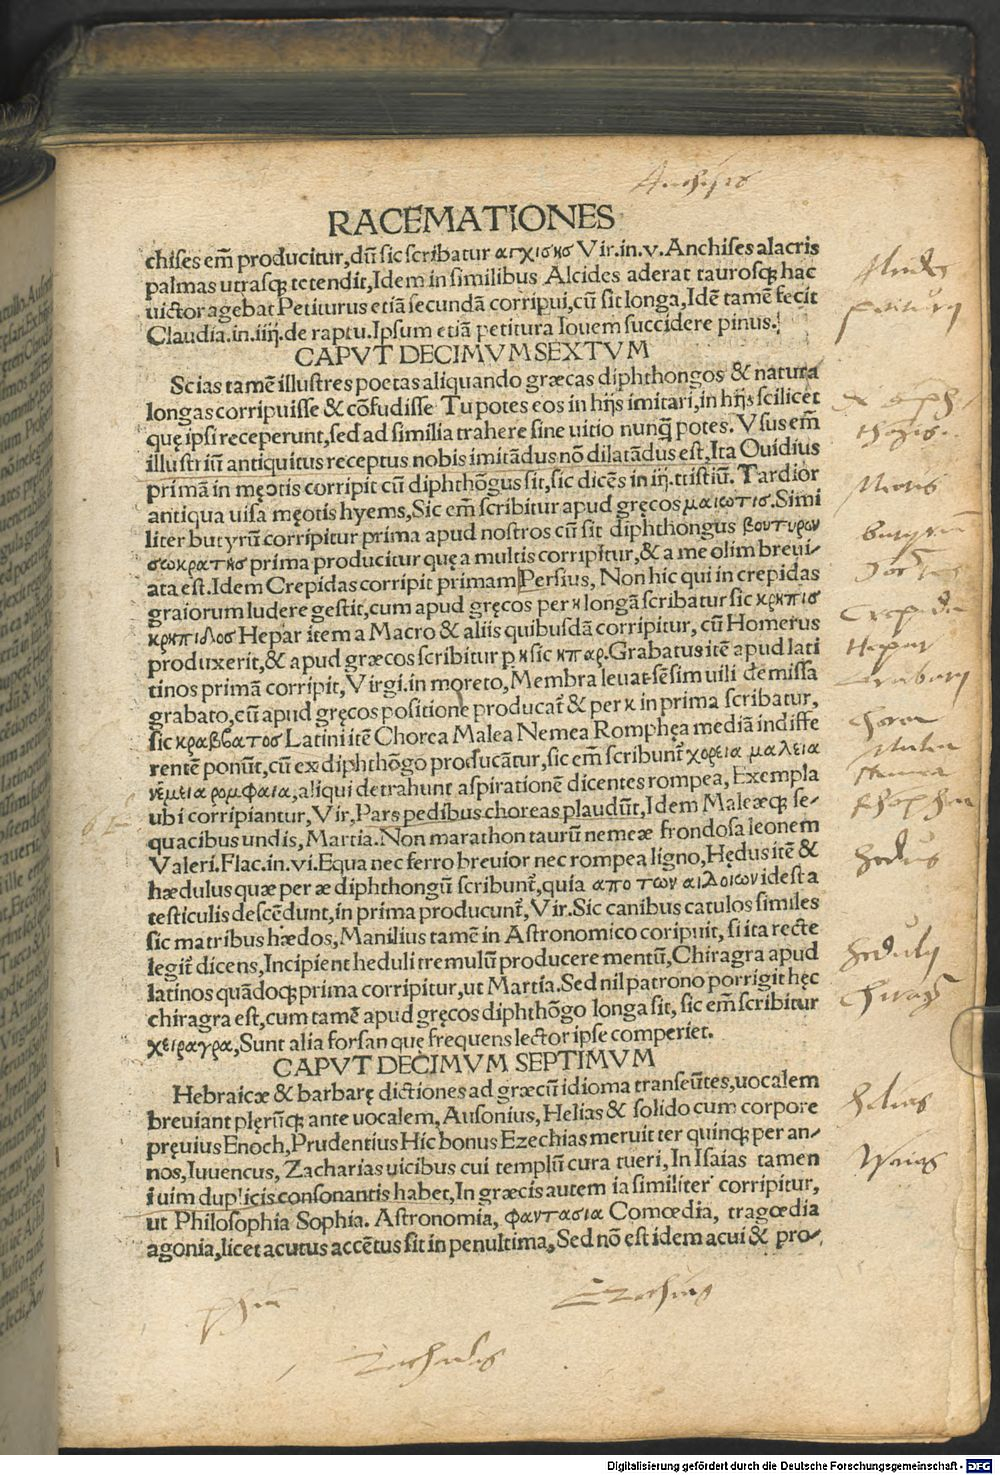 Anchises
RACEMATIONES
chises em̃ producitur,dũ sic scribatur αγχισκσ Vir.in.v.Anchises alacris
palmas utrasq; tetendit,Idem in similibus Alcides aderat taurosq; hac
uictor agebat Petiturus etiã secundã corripui,cũ sit longa,Idẽ tamẽ fecit
Claudia.in.iiij.de raptu.Ipsum etiã petitura Iouem succidere pinus.
CAPVT DECIMVM SEXTVM
Scias tamẽ illustres poetas aliquando græcas diphthongos & natura
longas corripuisse & cõfudisse Tu potes eos in hijs imitari,in hijs scilicet
quę ipsi receperunt,sed ad similia trahere sine uitio nunq̃ potes. Vsus em̃
illustriũ antiquitus receptus nobis imitãdus nõ dilatãdus est,Ita Ouidius
primã in męotis corripit cũ diphthõgus sit,sic dicẽs in iij.tristiũ. Tardior
antiqua uisa męotis hyems,Sic em̃ scribitur apud gręcos μαιωτισ.Simi
liter butyrũ corripitur prima apud nostros cũ sit diphthongus βουτυρον
σωκρατκσ prima producitur quę a multis corripitur,& a me olim breui-
ata est.Idem Crepidas corripit primam Persius, Non hic qui in crepidas
graiorum ludere gestit,cum apud gręcos per κ longã scribatur sic κρκπισ
κρκπιδοσ Hepar item a Macro & aliis quibusdã corripitur, cũ Homerus
produxerit,& apud græcos scribitur p κ sic κπαρ.Grabatus itẽ apud lati
tinos primã corripit,Virgi.in moreto,Membra leuat sẽsim uili demissa
grabato,cũ apud gręcos positione producat̃ & per κ in prima scribatur,
sic κραββατοσ Latini itẽ Chorea Malea Nemea Romphęa mediã indiffe
rentẽ ponũt,cũ ex diphthõgo producãtur,sic em̃ scribunt̃ χορεια μαλεια
νεμεια ρομφαια,aliqui detrahunt aspirationẽ dicentes rompea, Exempla
ubi corripiantur, Vir,Pars pedibus choreas plaudũt,Idem Maleæq; se-
quacibus undis, Martia.Non marathon taurũ nemeæ frondosa leonem
Valeri.Flac.in.vi.Equa nec ferro breuior nec rompea ligno,Hędus itẽ &
hædulus quæ per æ diphthongũ scribunt̃,quia απο των αιδοιων id est a
testiculis descẽdunt,in prima producunt̃, Vir.Sic canibus catulos similes
sic matribus hædos,Manilius tamẽ in Astronomico coripuit, si ita recte
legit̃ dicens,Incipient heduli tremulũ producere mentũ,Chiragra apud
latinos quãdoq; prima corripitur,ut Martia.Sed nil patrono porrigit hęc
chiragra est,cum tamẽ apud gręcos diphthõgo longa sit, sic em̃ scribitur
χειραγρα,Sunt alia forsan quę frequens lector ipse comperiet.
CAPVT DECIMVM SEPTIMVM
Hebraicæ & barbarę dictiones ad græcũ idioma transeũtes,uocalem
breuiant plęrũq; ante uocalem, Ausonius, Helias & solido cum corpore
pręuius Enoch,Prudentius Hic bonus Ezechias meruit ter quinq; per an-
nos,Iuuencus, Zacharias uicibus cui templũ cura tueri, In Isaias tamen
i uim duplicis consonantis habet,In græcis autem ia similiter corripitur,
ut Philosophia Sophia. Astronomia, φαντασια Comœdia, tragœdia
agonia,licet acutus accẽtus sit in penultima,Sed nõ est idem acui & pro-
Alcides
petiturus
Meotis
butyrum
Crepidas
Hepar
Chorea
Malea
Nemea
Rhophea
Hedus
Heduli
Chiragra
Helias
Ysaias
Ezechias
Zacharias
Digitalisierung gefördert durch die Deutsche Forschungsgemeinschaft - DFG